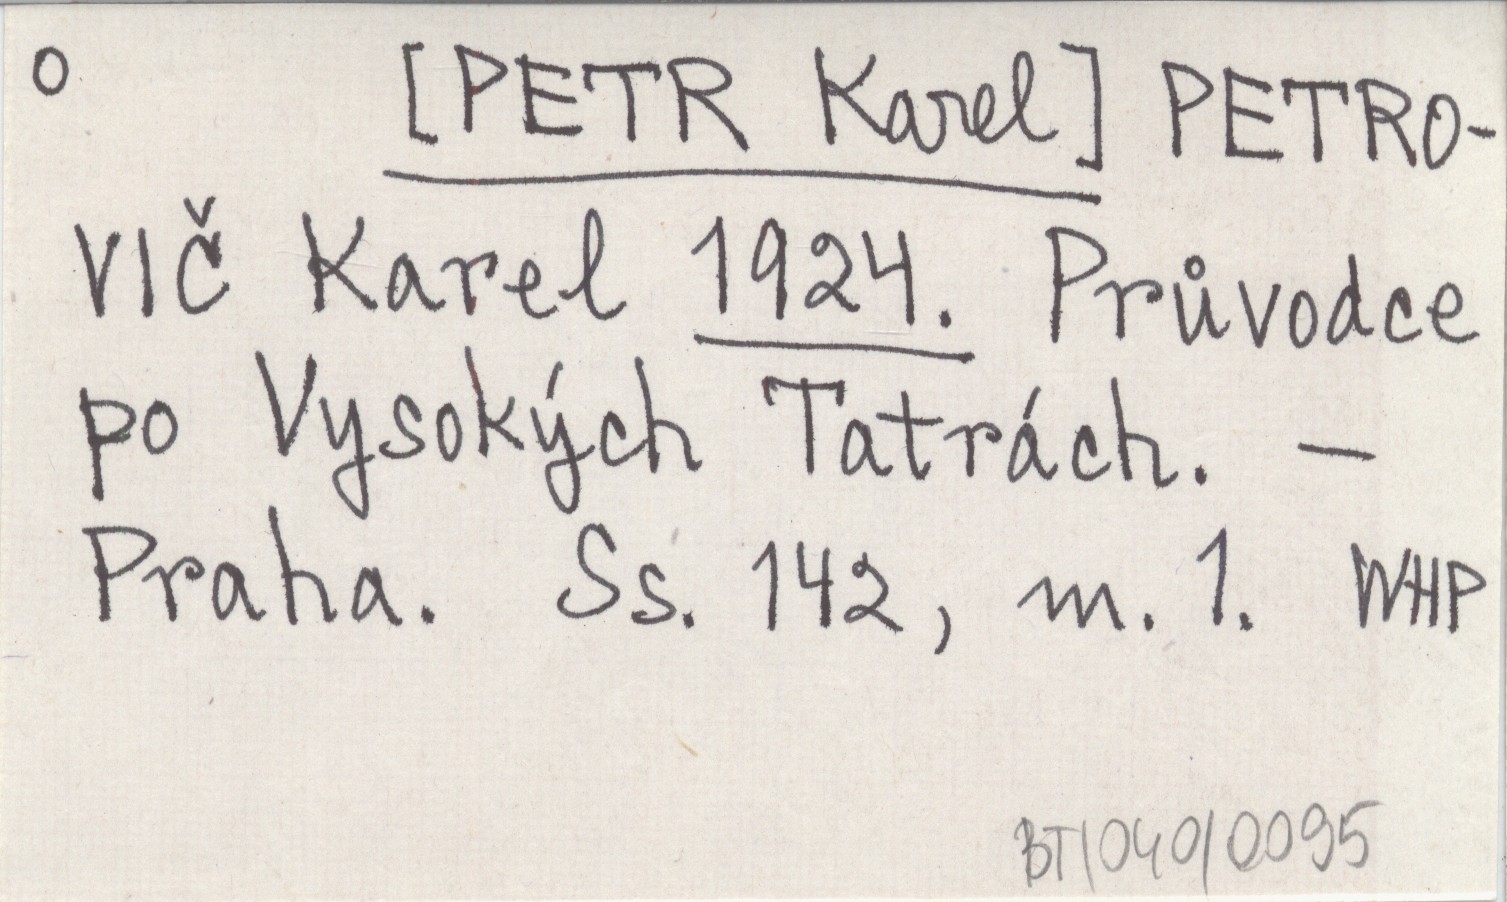 o [PETR Karel] PETRO-
VIČ Karel 1924. Průvodce
po Vysokých Tatrách. —
Praha. Ss. 142, m. 1. WHP
BT/040/0095